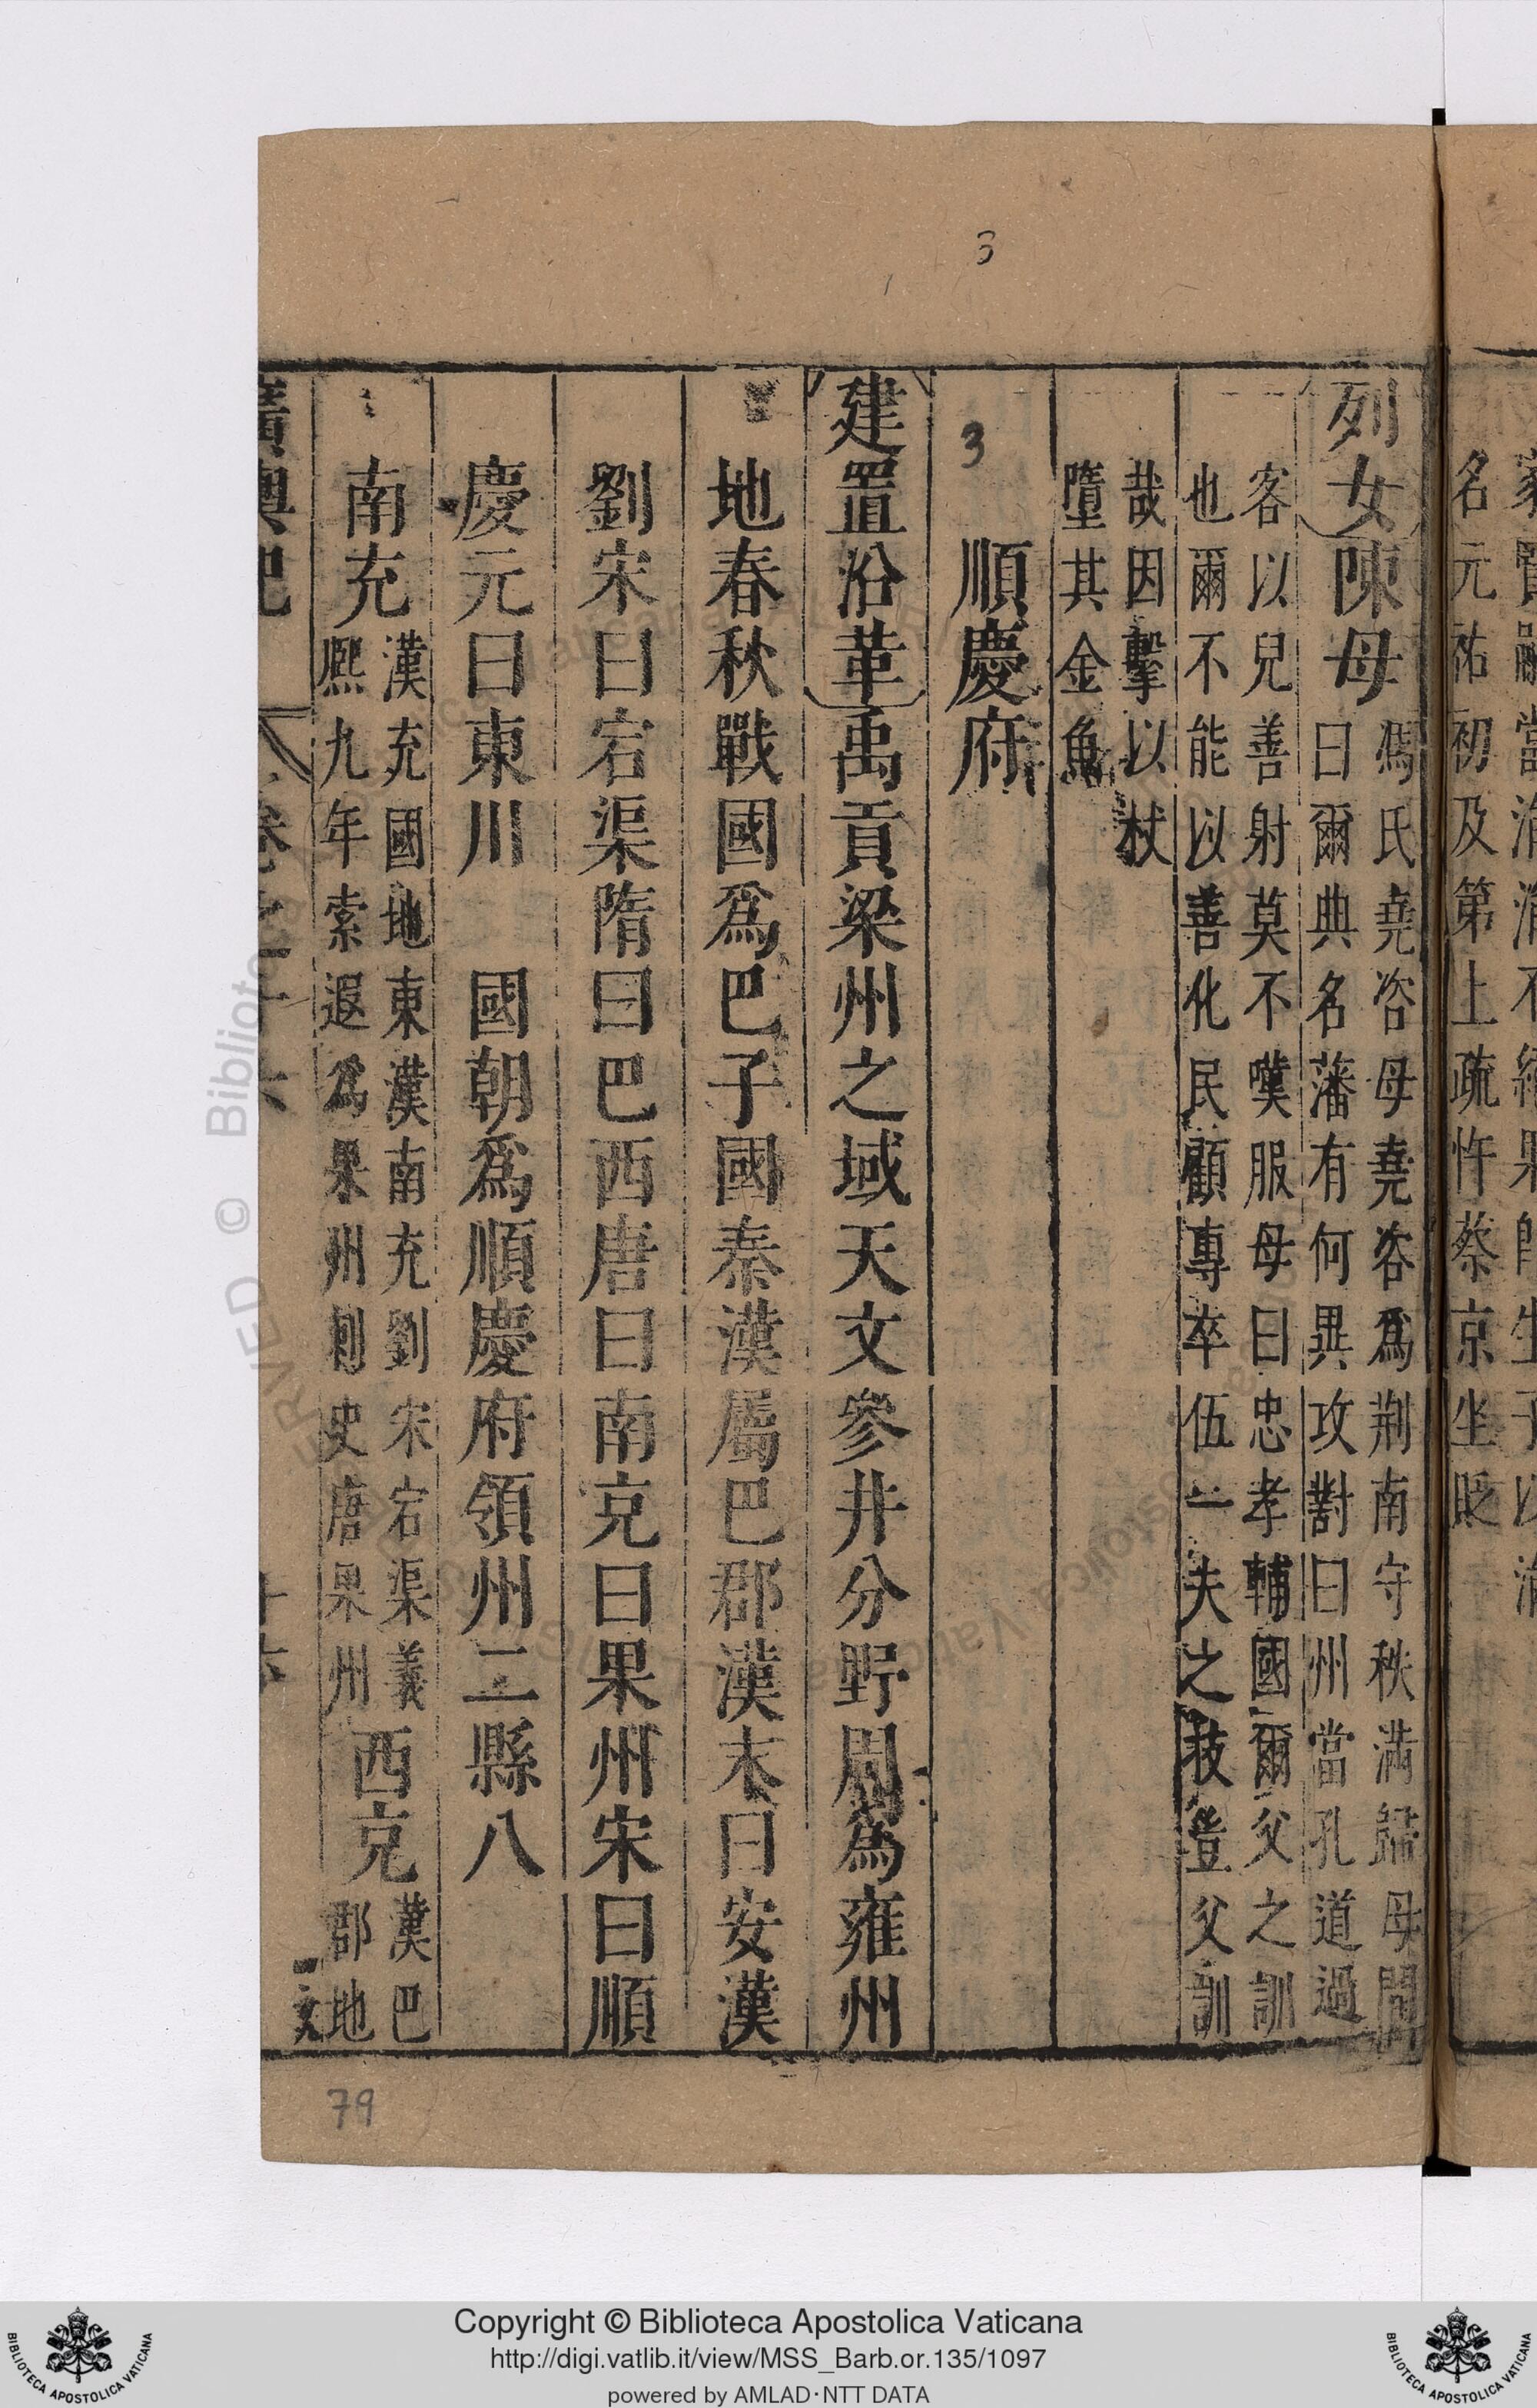 名元祐初及第上疏忤蔡京坐貶
列女陳母馮氏堯咨母堯咨爲荆南守秩滿歸母問
曰爾典名藩有何異攻對曰州當孔道過
客以兒善射莫不嘆服母曰忠孝輔國爾父之訓
也爾不能以善化民顧專卒伍一夫之技豈父訓
哉因擊以杖
墮其金魚
3
3
順慶府
建置沿革禹貢梁州之域天文參井分野周爲雍州
地春秋戰國爲巴子國秦漢屬巴郡漢末曰安漢
劉宋曰宕渠隋曰巴西唐曰南充曰果州宋曰順
慶元曰東川 國朝爲順慶府領州二縣八
南充漢充國地東漢南充劉宋宕渠義
熙九年索遐爲果州刺史唐果州
西充漢巴
郡地
廣輿記 卷之十六
79
Copyright © Biblioteca Apostolica Vaticana
http://digi.vatlib.it/view/MSS_Barb.or.135/1097
powered by AMLAD·NTT DATA
BIBLIOTECA APOSTOLICA VATICANA
BIBLIOTECA APOSTOLICA VATICANA